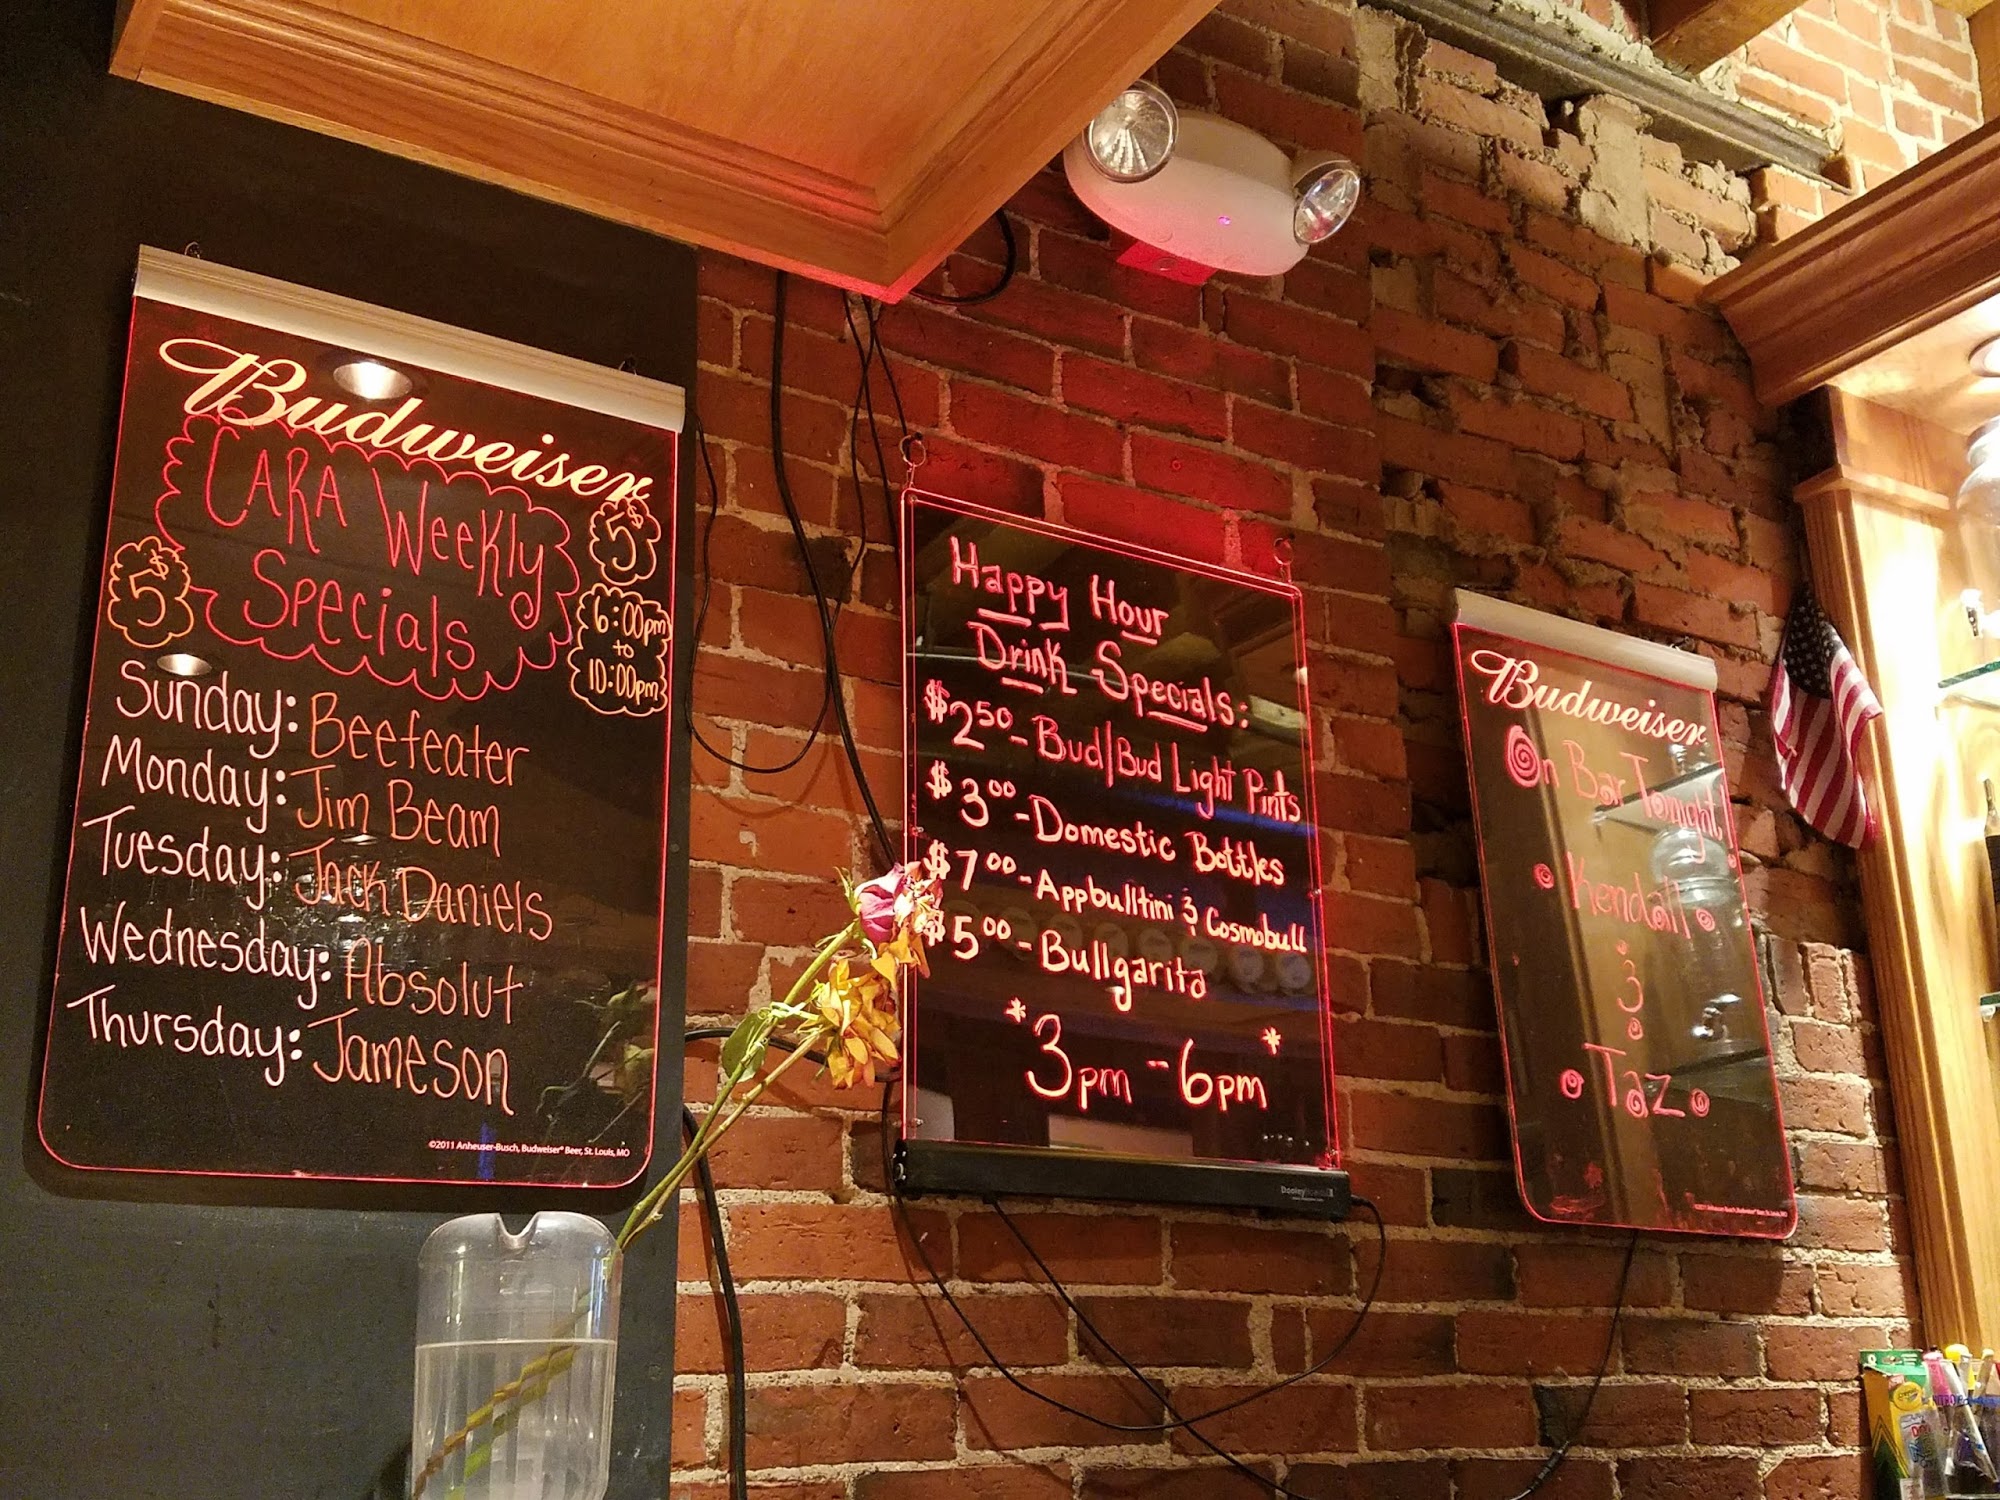 Budweiser
CARA Weekly
Specials
$5
$5
6:00pm
to
10:00pm
Sunday: Beefeater
Monday: Jim Beam
Tuesday: Jack Daniels
Wednesday: Absolut
Thursday: Jameson
©2011 Anheuser-Busch, Budweiser® Beer, St. Louis, MO
Happy Hour
Drink Specials:
$2.50 - Bud/Bud Light Pints
$3.00 - Domestic Bottles
$7.00 - Appbulltini & Cosmobull
$5.00 - Bullgarita
* 3pm - 6pm *
Budweiser
On Bar Tonight!
Kendall
&
Taz